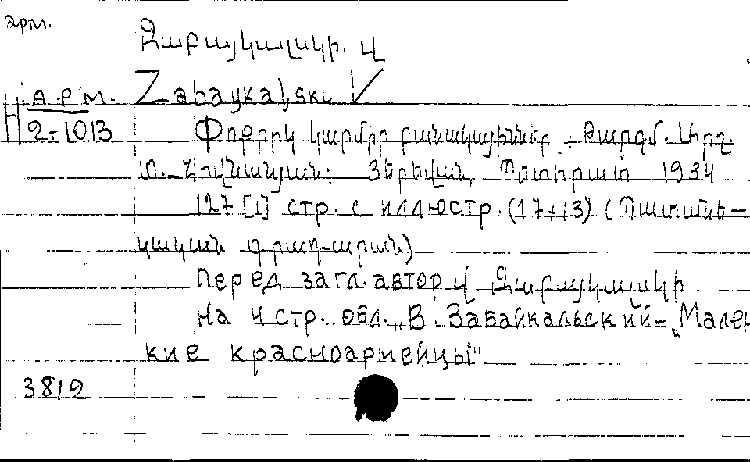 арм.
Զաբայկալսկի. Վ
АРМ. Zabaykalski V
2-1013 Փոքրիկ կարմիր բանակայիններ. Թարգմ.
Յերեվան, Պետհրատ 1934
127 [1] стр. с иллюстр. (17×13) (Պատանե-
կական գրադարան)
Перед загл. автор Վ Զաբայկալսկի
На 4 стр. обл. „В. Забайкальский – „Мален
кие красноармейцы"
3819